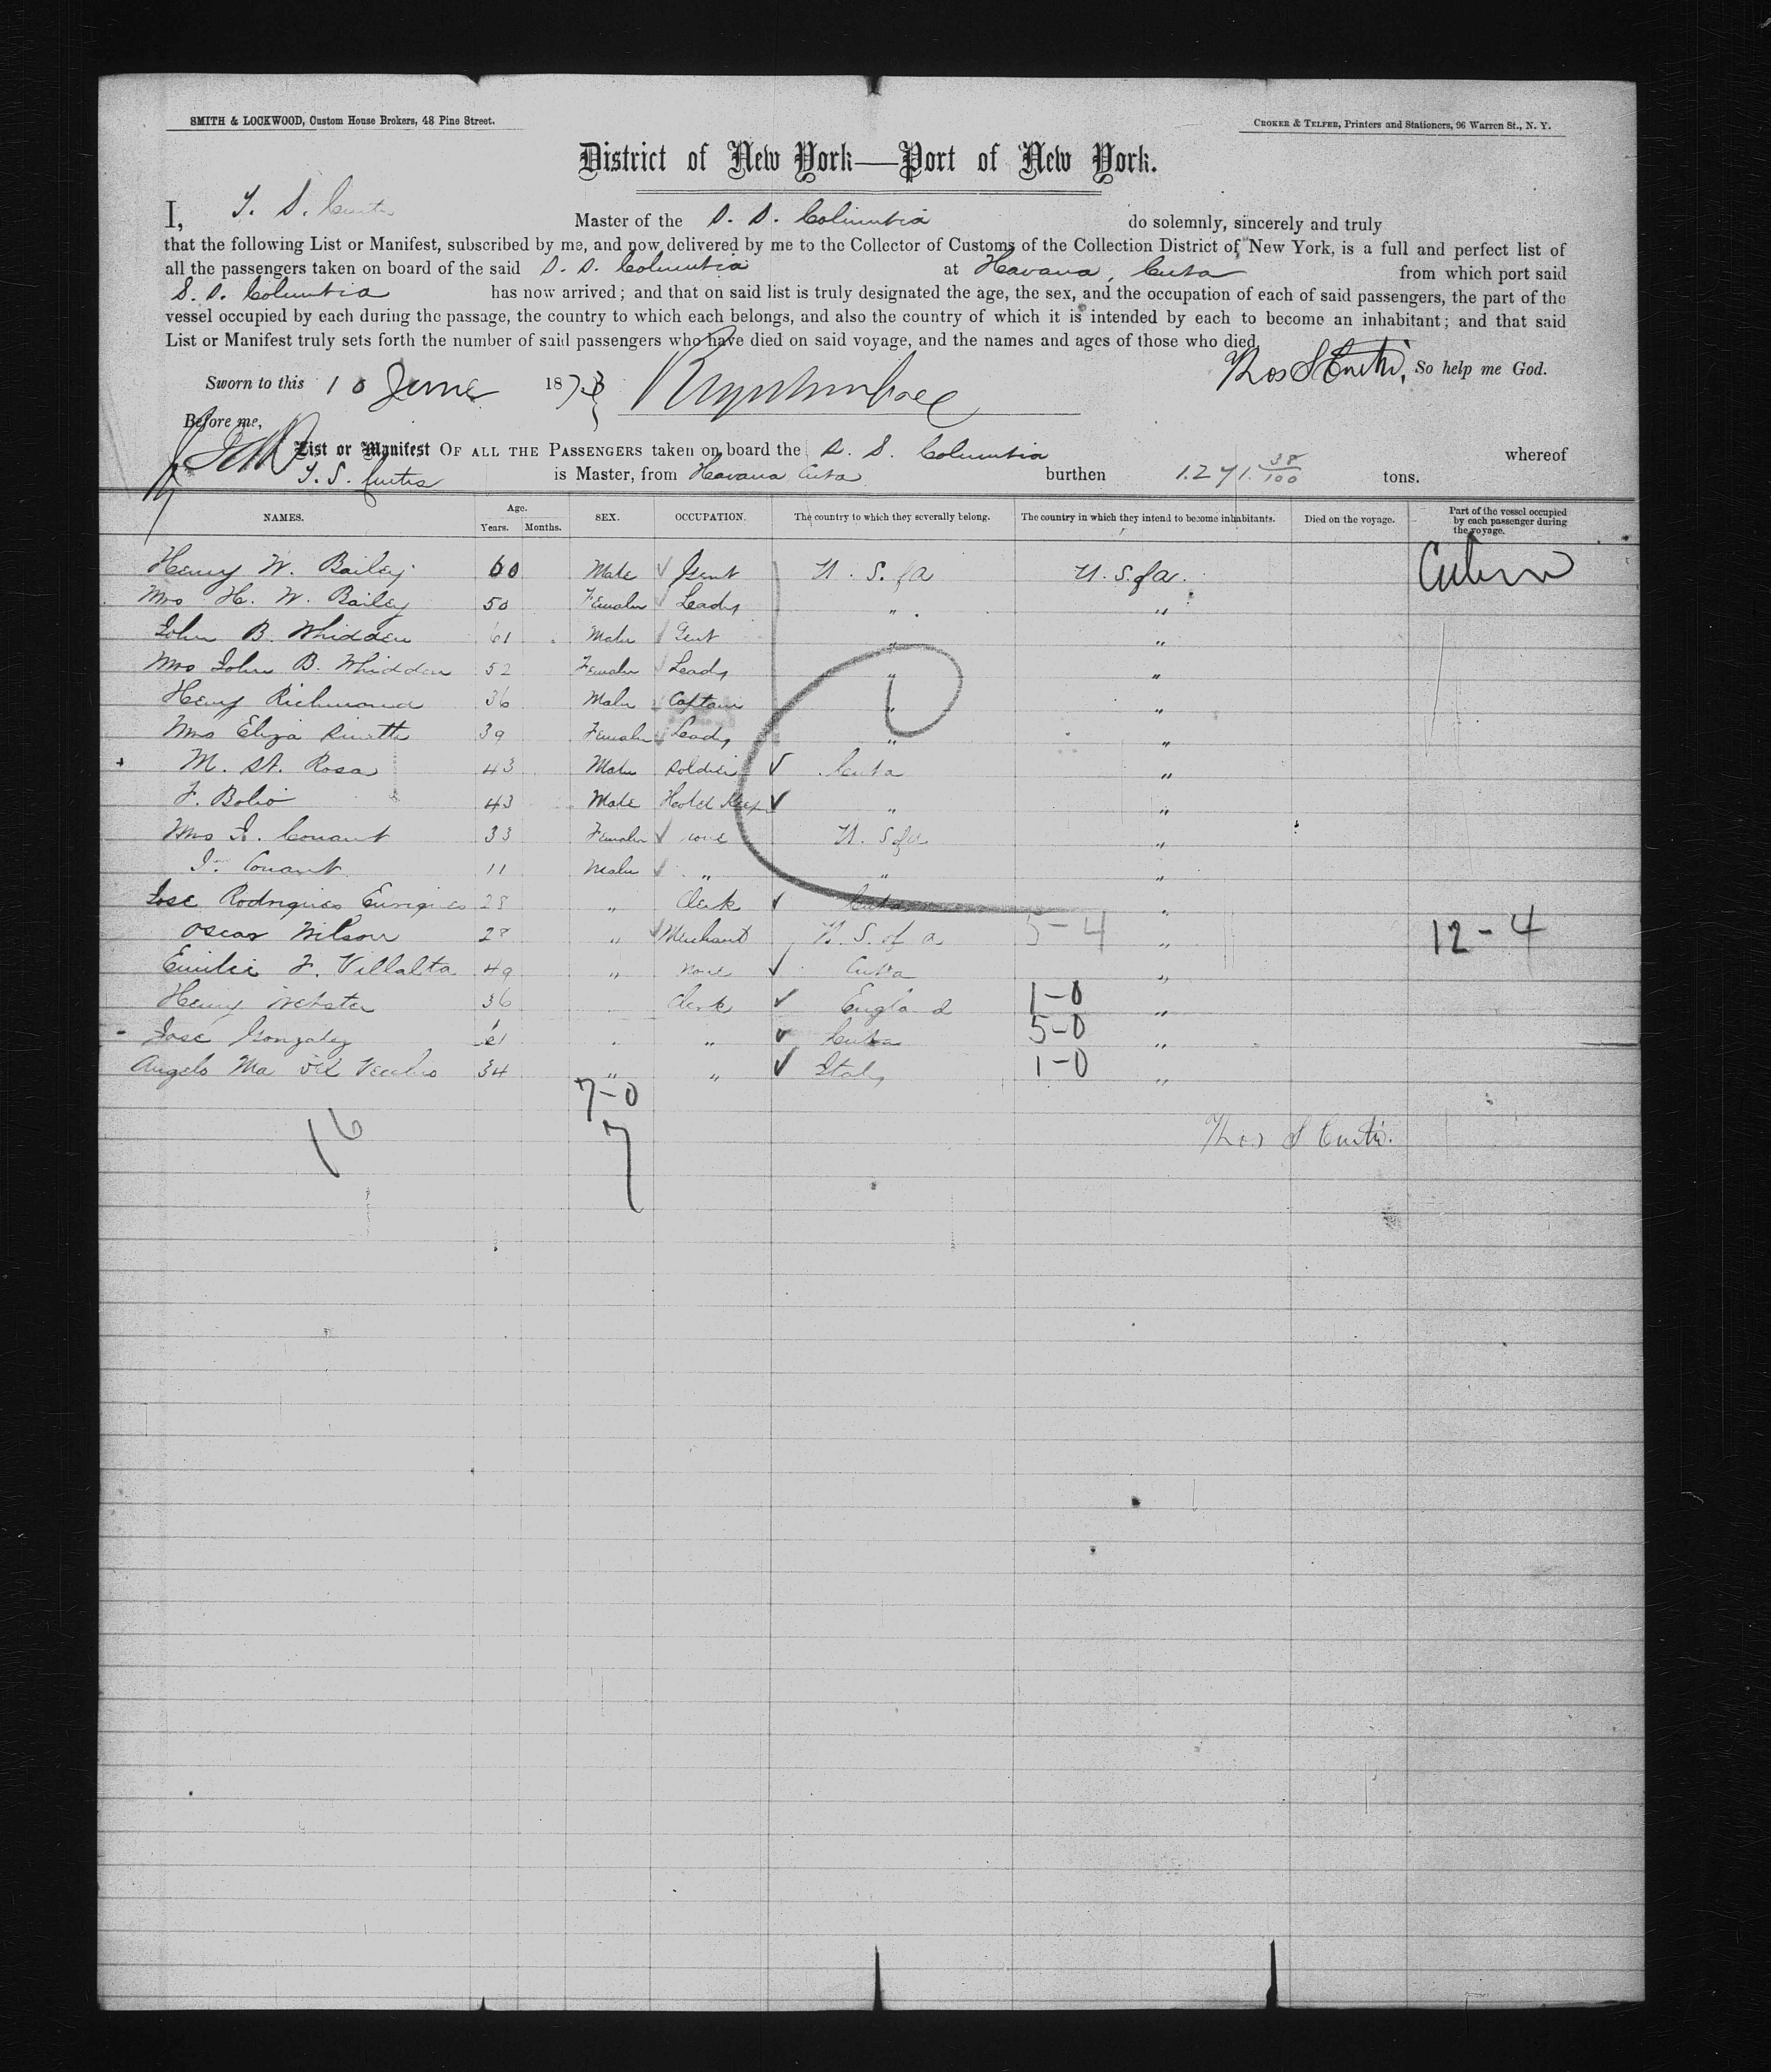 SMITH & LOCKWOOD, Custom House Brokers, 48 Pine Street.
CROKER & TELFER, Printers and Stationers, 96 Warren St., N. Y.
District of New York—Port of New York.
I, T. S. Curtis Master of the S. S. Columbia do solemnly, sincerely and truly
that the following List or Manifest, subscribed by me, and now delivered by me to the Collector of Customs of the Collection District of New York, is a full and perfect list of
all the passengers taken on board of the said S. S. Columbia at Havana, Cuba from which port said
S. S. Columbia has now arrived; and that on said list is truly designated the age, the sex, and the occupation of each of said passengers, the part of the
vessel occupied by each during the passage, the country to which each belongs, and also the country of which it is intended by each to become an inhabitant; and that said
List or Manifest truly sets forth the number of said passengers who have died on said voyage, and the names and ages of those who died.
Thos S Curtis, So help me God.
Sworn to this 10 June 1873
Before me,
List or Manifest OF ALL THE PASSENGERS taken on board the S. S. Columbia whereof
T. S. Curtis is Master, from Havana Cuba burthen 1.271. 38/100 tons.
NAMES. Age. Years. Months. SEX. OCCUPATION. The country to which they severally belong. The country in which they intend to become inhabitants. Died on the voyage. Part of the vessel occupied by each passenger during the voyage.
Henry W. Bailey 60 Male Gent U. S. of A U. S. of A.
Mrs H. W. Bailey 50 Female Leady " "
John B. Whidden 61 Male Gent " "
Mrs John B. Whidden 52 Female Leady " "
Henry Richmond 36 Male Captain " "
Mrs Eliza Smith 39 Female Leady " "
M. St. Rosa 43 Male Soldier Cuba "
F. Bolio 43 Male " "
Mrs I. Conant 33 Female none U. S of a "
I. Conant 11 Male " " "
Jose Rodriguies 28 " Clerk Cuba "
Oscar Wilson 28 " Merchant U. S. of a 5-4 " 12-4
Emilie F. Villalta 49 " none Cuba "
Henry Webster 36 Clerk England 1-0 "
Jose Gonzalez " Cuba 5-0 "
Angelo Ma del Vecchio 34 " " Italy 1-0 "
7-0
16 7
Thos S Curtis.